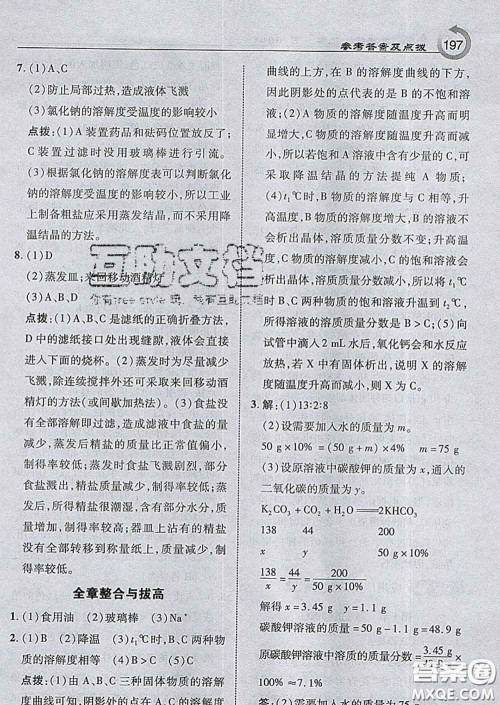 参考答案及点拨 197
7. (1)A、C
(2)防止局部过热，造成液体飞溅
(3)氯化钠的溶解度受温度的影响较小
点拨：(1)A 装置药品和砝码位置放反了；
C 装置过滤时没用玻璃棒进行引流。
(3)根据氯化钠的溶解度表可以判断氯化
钠的溶解度受温度的影响较小，所以工业
上制备粗盐应用蒸发结晶，而不采用降
温结晶的方法。
8. (1)D
(2)蒸发皿；来回移动酒精灯
(3)A、B、D
点拨：(1)A 是滤纸的正确折叠方法，
D 中的滤纸接口处出现缝隙，液体会直接
进入下面的烧杯。(2)蒸发时为尽量减少
飞溅，除连续搅拌外还可采用来回移动酒
精灯的方法（或间歇加热法）。(3)食盐没
有全部溶解即过滤，会造成食盐的质量
减少，蒸发后精盐的质量也会偏小，
制得率较低；蒸发时食盐飞溅剧烈，部分
食盐会溅出，造成精盐的质量减少，
制得率较低；所得精盐很潮湿，含有水分，
质量偏大，制得率较高；器皿上沾有的精盐
没有全部转移到称量纸上，质量偏小，制
得率较低。
全章整合与拔高
1. (1)食用油 (2)玻璃棒 (3)Na⁺
2. (1)B (2)降温 (3)t₁℃时，A、C 两种物质的
溶解度相等 (4)B (5)B
点拨：(1)溶解度曲线上的点对应的溶液
是饱和溶液，阴影处的点在 A 的溶解
度
曲线的上方，在 B 的溶解度曲线的下方，
因此阴影处的点代表的是 B 的不饱和溶
液；(2)A 物质的溶解度随温度升高而明
显增大，B 物质的溶解度随温度升高而增
大，所以若 A 溶液中含有少量的 C，可以
采用降温结晶的方法提纯 A 物质；
(4)t₁℃时，B 物质的溶解度与 C 相等，升
高温度，B 的溶解度增大，所以溶液不会
析出晶体，溶质质量分数不变，C 物质的
溶解度随温度升高而减小，所以溶液会析
出晶体，溶质质量分数减小，所以将 t₁℃
时 B、C 两种物质的饱和溶液升温到 t₂℃
时，所得溶液的溶质质量分数的大小关系
为：溶质质量分数 B＞C；(5)向
试管中滴入 2 mL 水，氧化钙会和水反应
放热，若 X 中有固体析出，说明 X 的溶解
度随温度升高而减小，则 X 为 B。
3. 解：(1)13:2:8
(2)设需要加入水的质量为 m。
50 g×10%＝(50 g＋m)×4% m＝75 g
(3)设原溶液中碳酸钾的质量为 x，通入的
二氧化碳的质量为 y。
K₂CO₃＋CO₂＋H₂O═2KHCO₃
138 44 200
x y 50 g×10%
138/x＝44/y＝200/(50 g×10%)
解得 x＝3.45 g y＝1.1 g
碳酸钾溶液的质量＝50 g－1.1 g＝48.9 g
原碳酸钾溶液中溶质的质量分数＝3.45 g/48.9 g×
100%≈7.1%
答：(2)需要加入水的质量
互助文档
答案圈
MXQE.COM